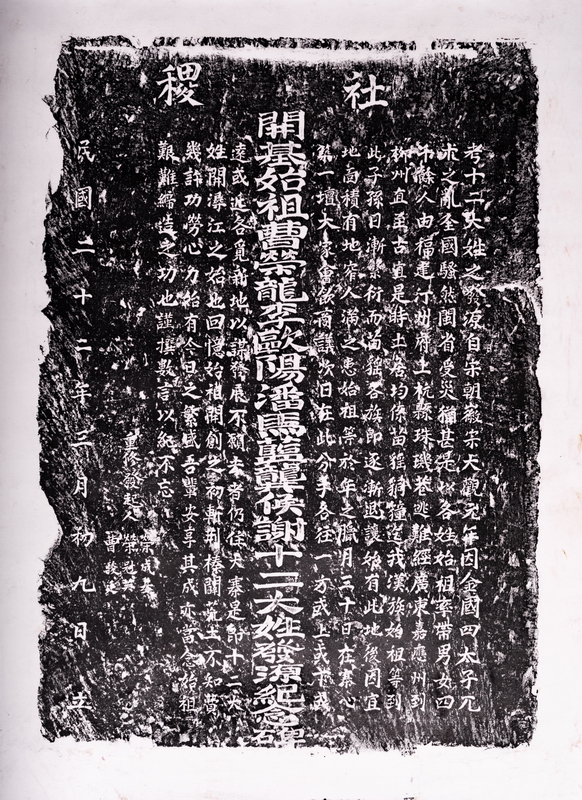 社稷
考十二大姓之發源自宋朝徽宋大觀元年因金國四太子兀
朮之亂全國騷然閩省受災猶甚是以各姓始祖率帶男女四
十餘人由福建汀州府上杭縣珠璣巷逃難經廣東嘉應州到
柳州宜山古宜是時土舊均係苗猺獞我漢族始祖等到
此子孫日漸繁衍而苗猺各族即逐漸退讓娘有此地後因宜
地面積有地窄人滿之患始祖等於年之臘月三十日在寨心
祭一壇大家會議商議次日在此分手各往一方或上或下或
開基始祖曹榮龍李歐陽潘馬藍龔侯謝十二大姓發源紀念碑
遠或近各覓新地以謀發展不願去者仍住大寨是即十二大
姓開潯江之始也回憶始祖開創之初暫荊榛闢荒土不知費
幾許功勞心力始有今日之繁盛吾輩安享其成亦當念始祖
艱難締造之功也謹撰數言以紀不忘
重修發起人
榮成基
榮冠英
曹
民國二十二年三月初九日立